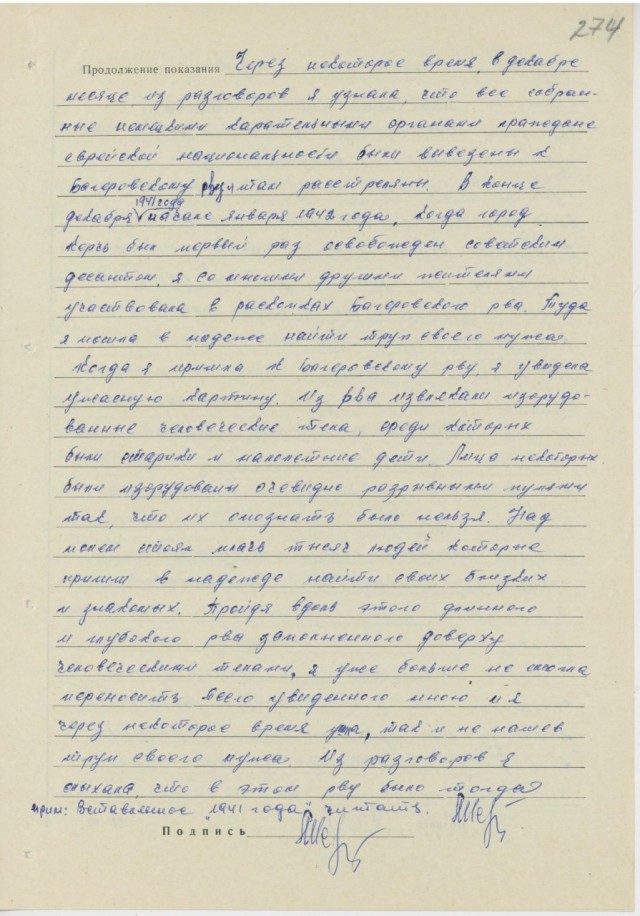 274
Продолжение показания Через некоторое время, в декабре
месяце из разговоров я узнала, что все собран-
ные немецкими карательными органами граждане
еврейской национальности были вывезены к
Багеровскому рву и там расстреляны. В конце
1941 года
декабря начале января 1942 года, когда город
Керчь был первый раз освобожден советским
десантом, я со многими другими жителями
участвовала в раскопках Багеровского рва. Туда
я пошла в надежде найти труп своего мужа.
Когда я пришла к Багеровскому рву, я увидела
ужасную картину. Из рва извлекали изуродо-
ванные человеческие тела, среди которых
были старики и малолетние дети. Лица некоторых
были изуродованы очевидно разрывными пулями
так, что их опознать было нельзя. Над
полем стоял плач тысяч людей которые
пришли в надежде найти своих близких
и знакомых. Пройдя вдоль этого длинного
и глубокого рва заполненного доверху
человеческими телами, я уже больше не смогла
переносить всего увиденного мною и я
через некоторое время ушла, так и не нашев
труп своего мужа. Из разговоров я
слыхала, что в этом рву было тогда
прим: Вставленное "1941 года" читать.
Подпись